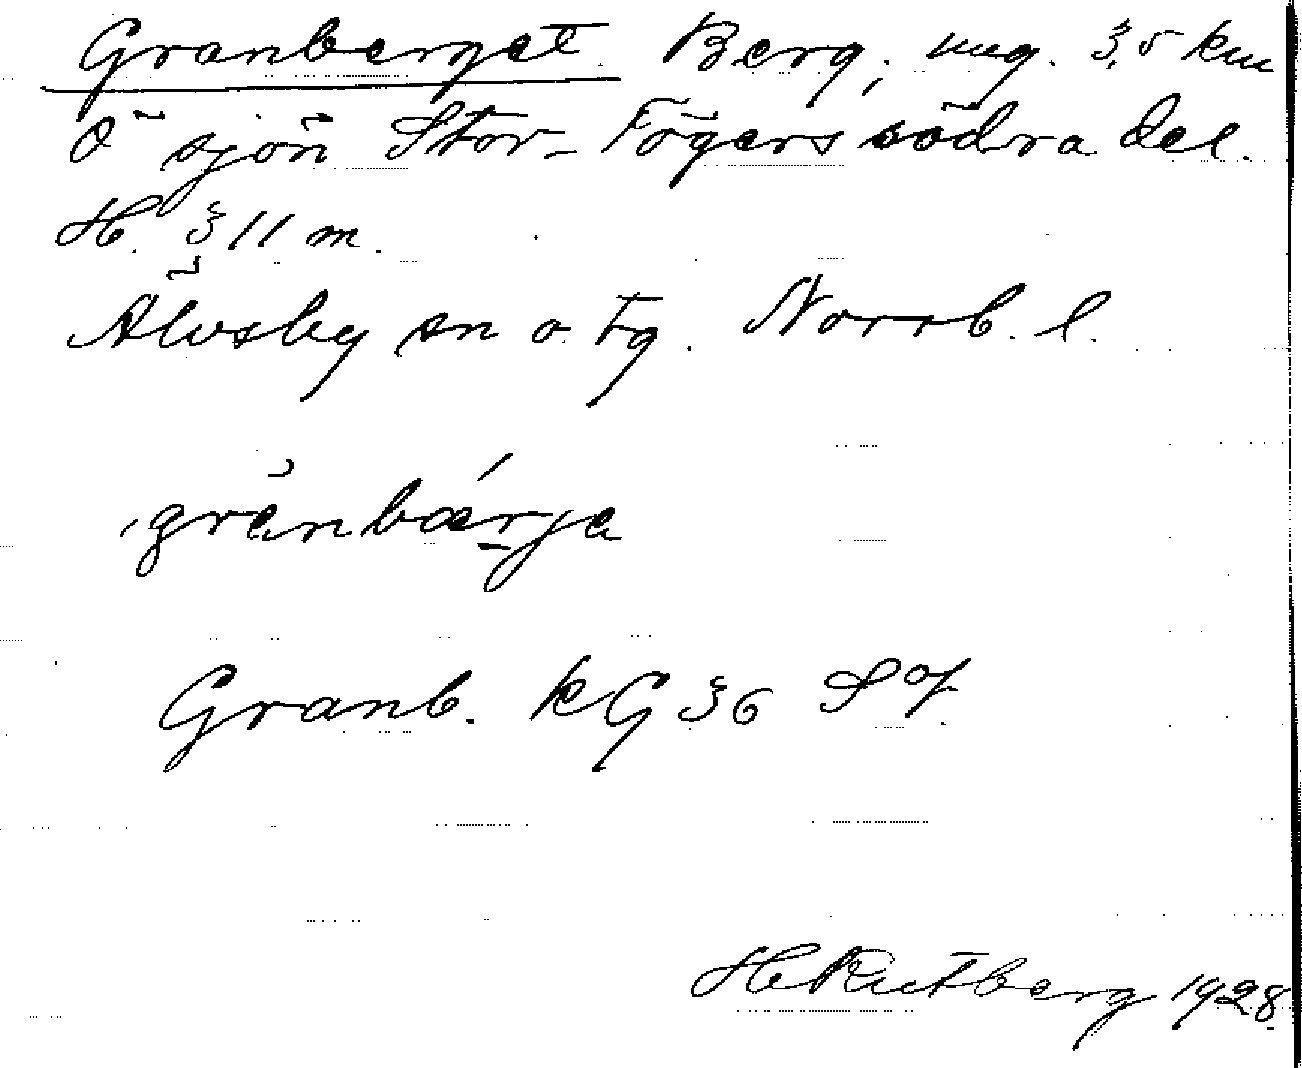 Granberget Berg, ung. 3,5 km
Ö sjön Stor-Tögers södra del.
H. 311 m.
Älvsby sn o tg. Norrb. l.
grànbǽrje
Granb. kG 36 SO
H Rutberg 1928